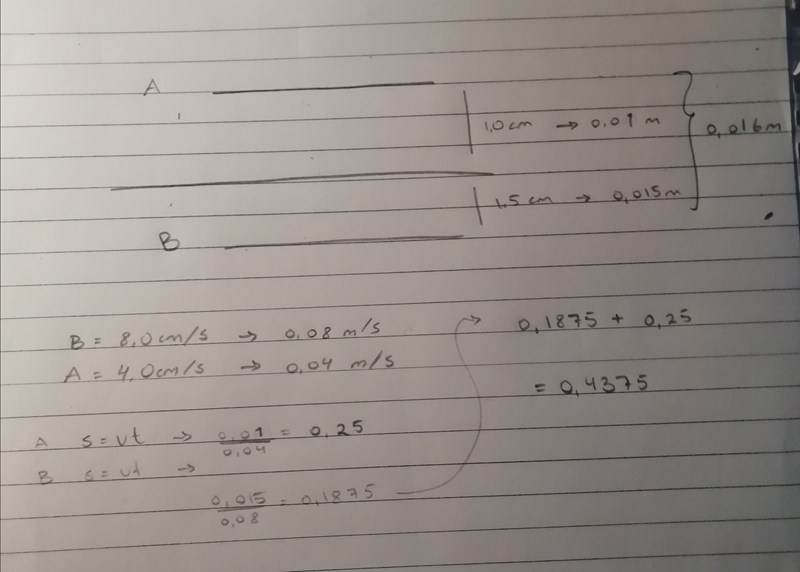 A
1,0cm → 0,01 m
0,016m
1,5 cm → 0,015m
B
B = 8,0cm/s → 0,08 m/s
A = 4,0cm/s → 0,04 m/s
→ 0,1875 + 0,25
= 0,4375
A s=vt → 0,01/0,04 = 0,25
B s=vt →
0,015/0,08 = 0,1875